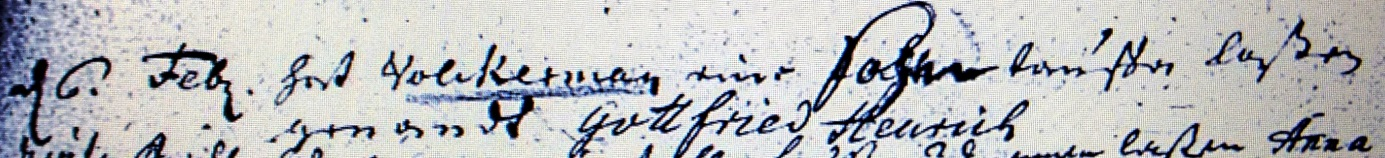 d 6. Febr. hat Volckerman eine Sohn tauffen laßen
genandt Gottfried Henrich
laßen Anna